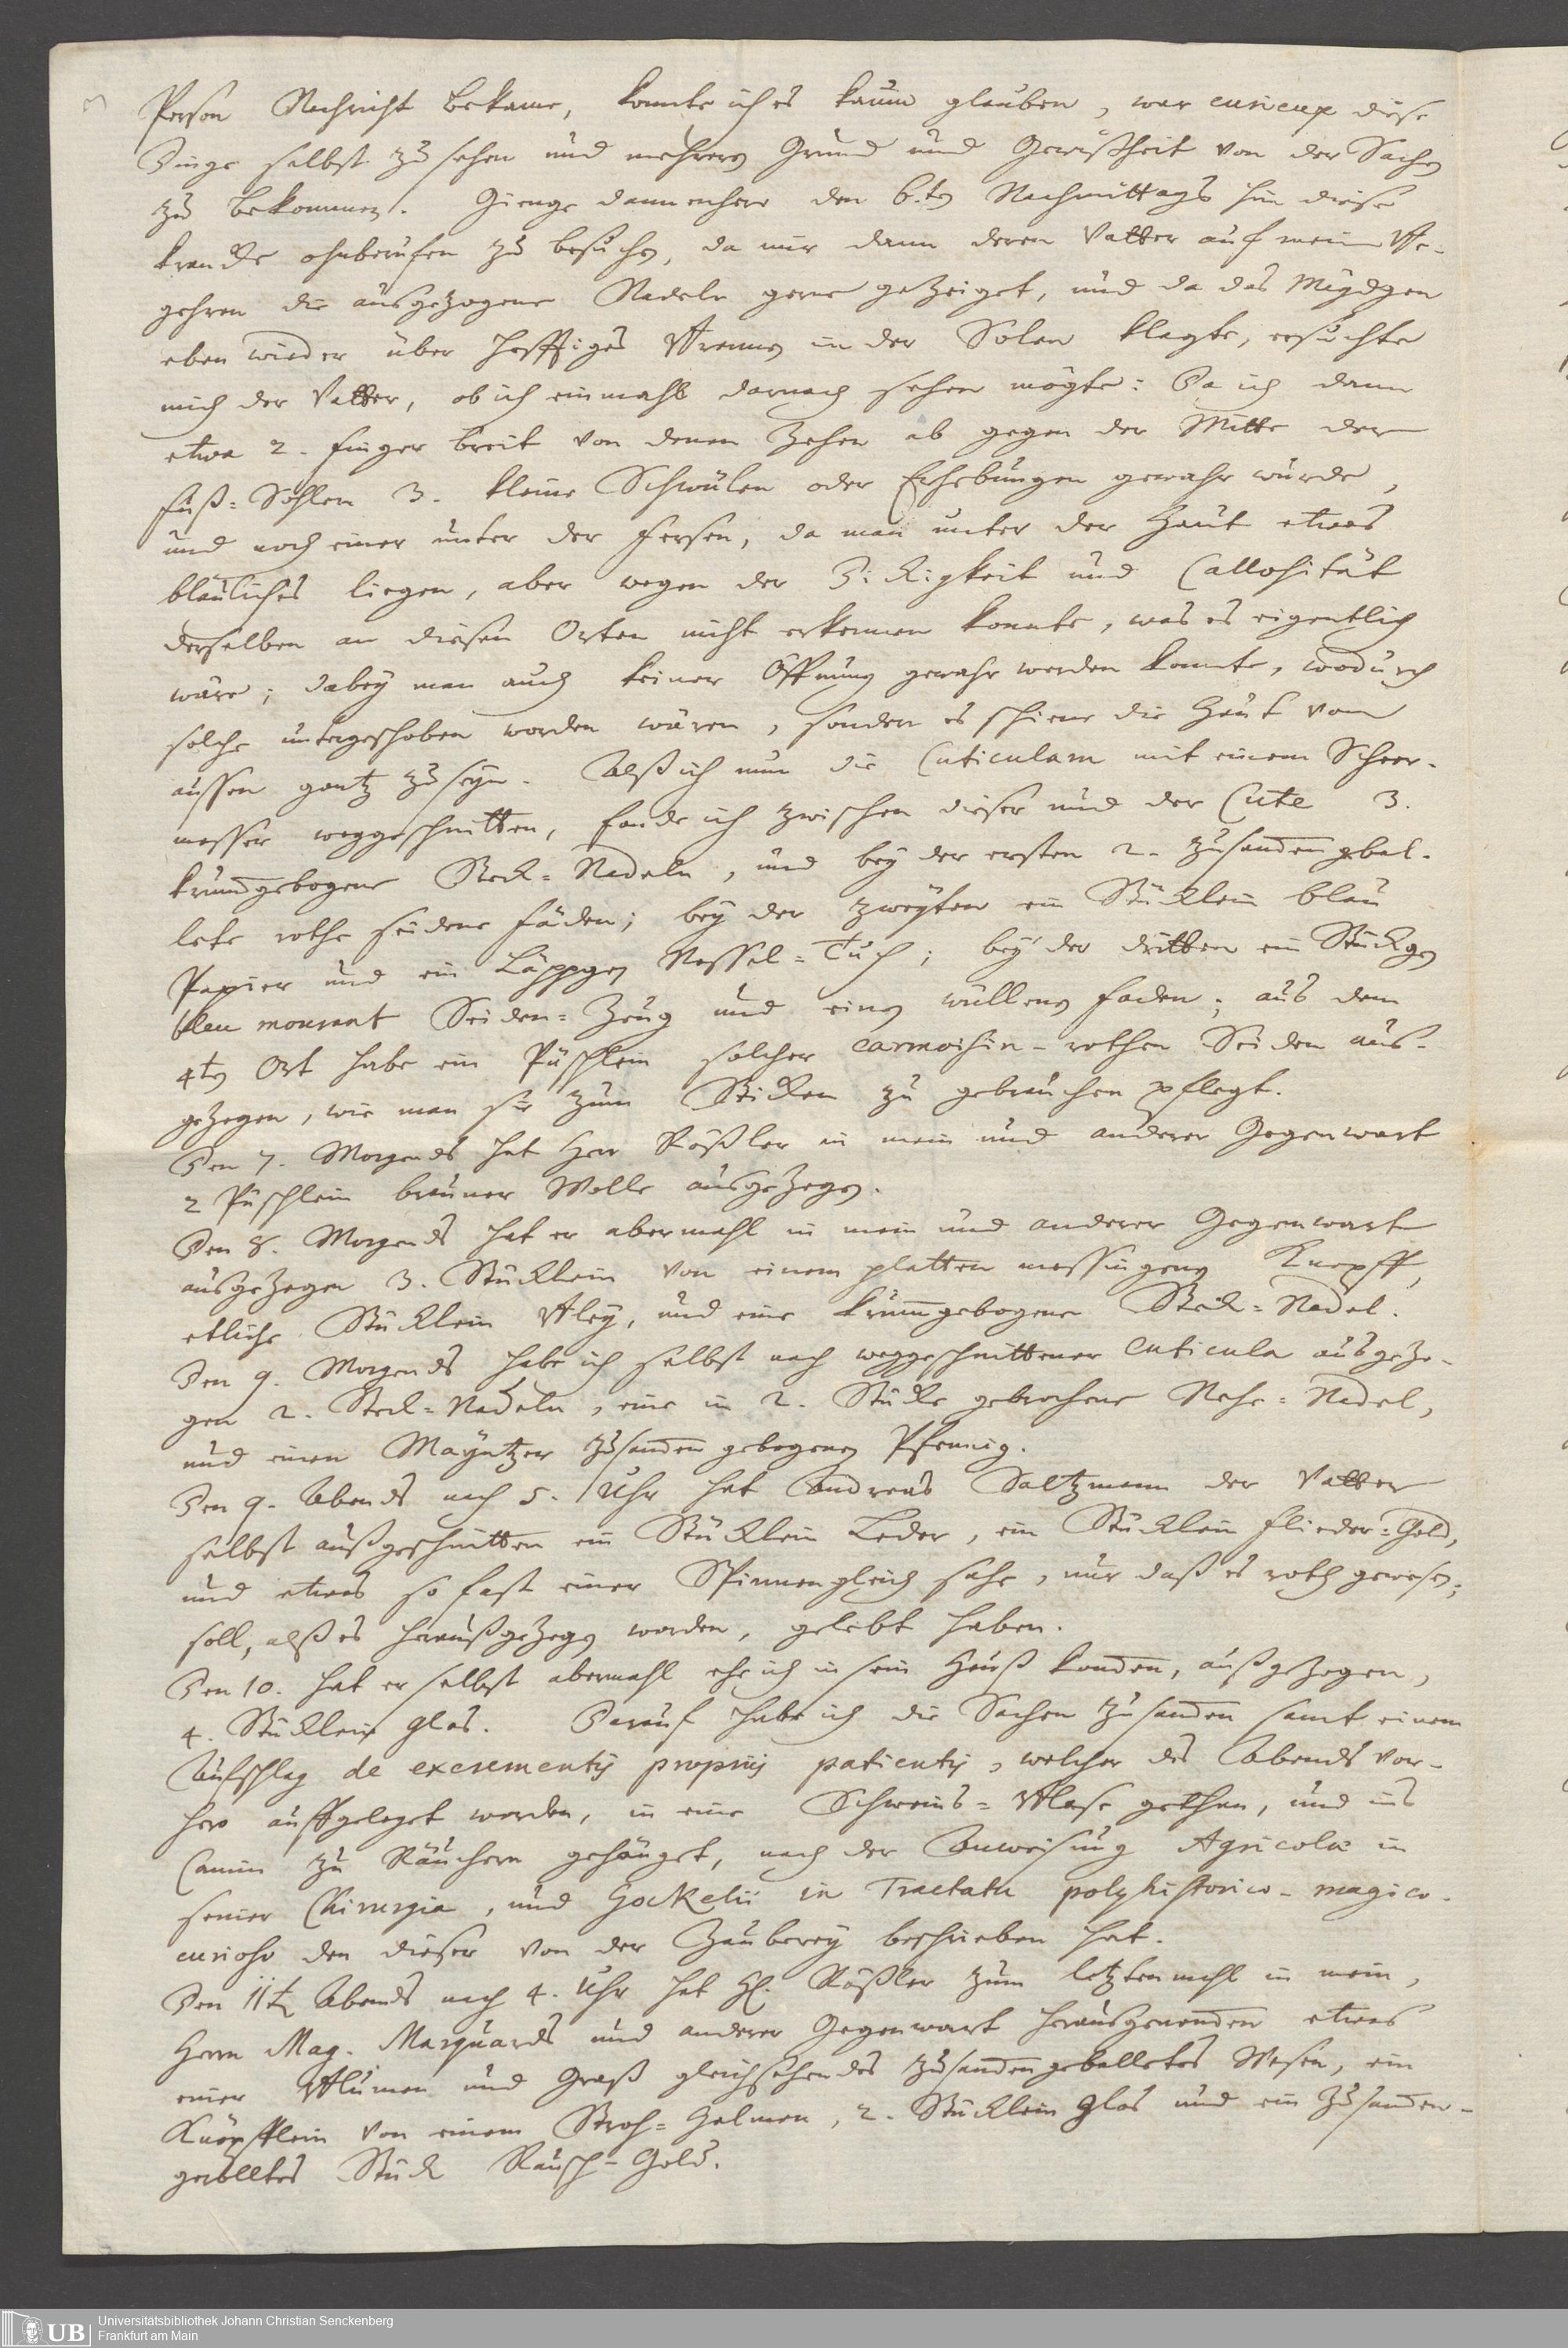 Person Nachricht bekame, konnte ich es kaum glauben, war curieux diese
Dinge selbst zu sehen und mehrern Grund und Gewißheit von der Sachen
zu bekommen. Gienge dannenhero den 6.ten Nachmittags hin diese
krancke ohnberufen zu besuchen, da mir dann deren Vatter auf mein Be-
gehren die ausgezogene Nadeln gerne gezeiget, und da das Mägdgen
eben wieder über hefftiges Brennen in der Solen klagte, ersuchte
mich der Vatter, ob ich einmahls darnach sehen mögte: Da ich dann
etwa 2. finger breit von denen Zehen ab gegen der Mitte der
fuß-Sohlen 3. kleine Schwülen oder Erhebungen gewahr wurde,
und noch einer unter der fersen, da man unter der Haut etwas
bläuliches liegen, aber wegen der Dickigkeit und Callosität
derselben an diesen Orten nicht erkennen konnte, was es eigentlich
wäre; dabey man auch keiner Öffnung gewahr werden konnte, wodurch
solche untergeschoben worden wären, sondern es schiene die Haut von
aussen gantz zu seyn. Alß ich nun die Cuticulam mit einem Scheer-
messer weggeschnitten, fande ich zwischen dieser und der Cute 3.
krummgebogene Steck-Nadeln, und bey der ersten 2. zusammengebal-
lete rothe seidene fäden; bey der zweyten ein Stücklein blau
Papier und ein Läppgen Nessel-Tuch; bey der dritten ein Stückgen
bleu mourant Seiden-Zeug und einen wüllenen faden; aus dem
4ten Ort habe ein Püschlein solcher carmoisin-rothen Seiden aus-
gezogen, wie man sie zum Sticken zu gebrauchen pflegt.
Den 7. Morgends hat Herr Rößler in mein und anderer Gegenwart
2 Püschlein brauner Wolle ausgezogen.
Den 8. Morgends hat er abermahl in mein und anderer Gegenwart
ausgezogen 3. Stücklein von einem platten messingenen Knopff,
etliche Stücklein Bley, und eine krummgebogene Steck-Nadel.
Den 9. Morgends habe ich selbst nach weggeschnittener Cuticula ausgezo-
gen 2. Steck-Nadeln, eine in 2. Stücke gebrochene Nehe-Nadel,
und einen Mayntzer zusammen gebogenen Pfennig.
Den 9. Abends nach 5. Uhr hat Andreas Saltzmann der Vatter
selbst außgeschnitten ein Stücklein Leder, ein Stücklein flieder-Gold,
und etwas so fast einer Spinnen gleich sahe, nur daß es roth gewesen;
soll, alß es herausgezogen worden, gelebt haben.
Den 10. hat er selbst abermahl ehe ich in sein Hauß kommen, außgezogen,
4. Stücklein Glas. Darauf habe ich die Sachen zusammen samt einem
Aufschlag de excrementis propriis patientis, welcher des Abends vor-
hero auffgeleget worden, in eine Schweins-Blase gethan, und ins
Camin zu Räuchern gehänget, nach der Anweisung Agricolæ in
seiner Chirurgia, und Gockelii in Tractatu polyhistorico-magico-
curioso den dieser von der Zauberey beschrieben hat.
Den 11ten Abends nach 4. Uhr hat H. Rößler zum letztenmahl in mein,
Herrn Mag. Marquards und anderer Gegenwart herausgenommen etwas
einer Blumen und Graß gleichsehendes zusammengeballetes Wesen, ein
Knöpfflein von einem Stroh-Halmen, 2. Stücklein Glas und ein zusammen-
gerolltes Stück Rausch-Gold.
Universitätsbibliothek Johann Christian Senckenberg
Frankfurt am Main
UB